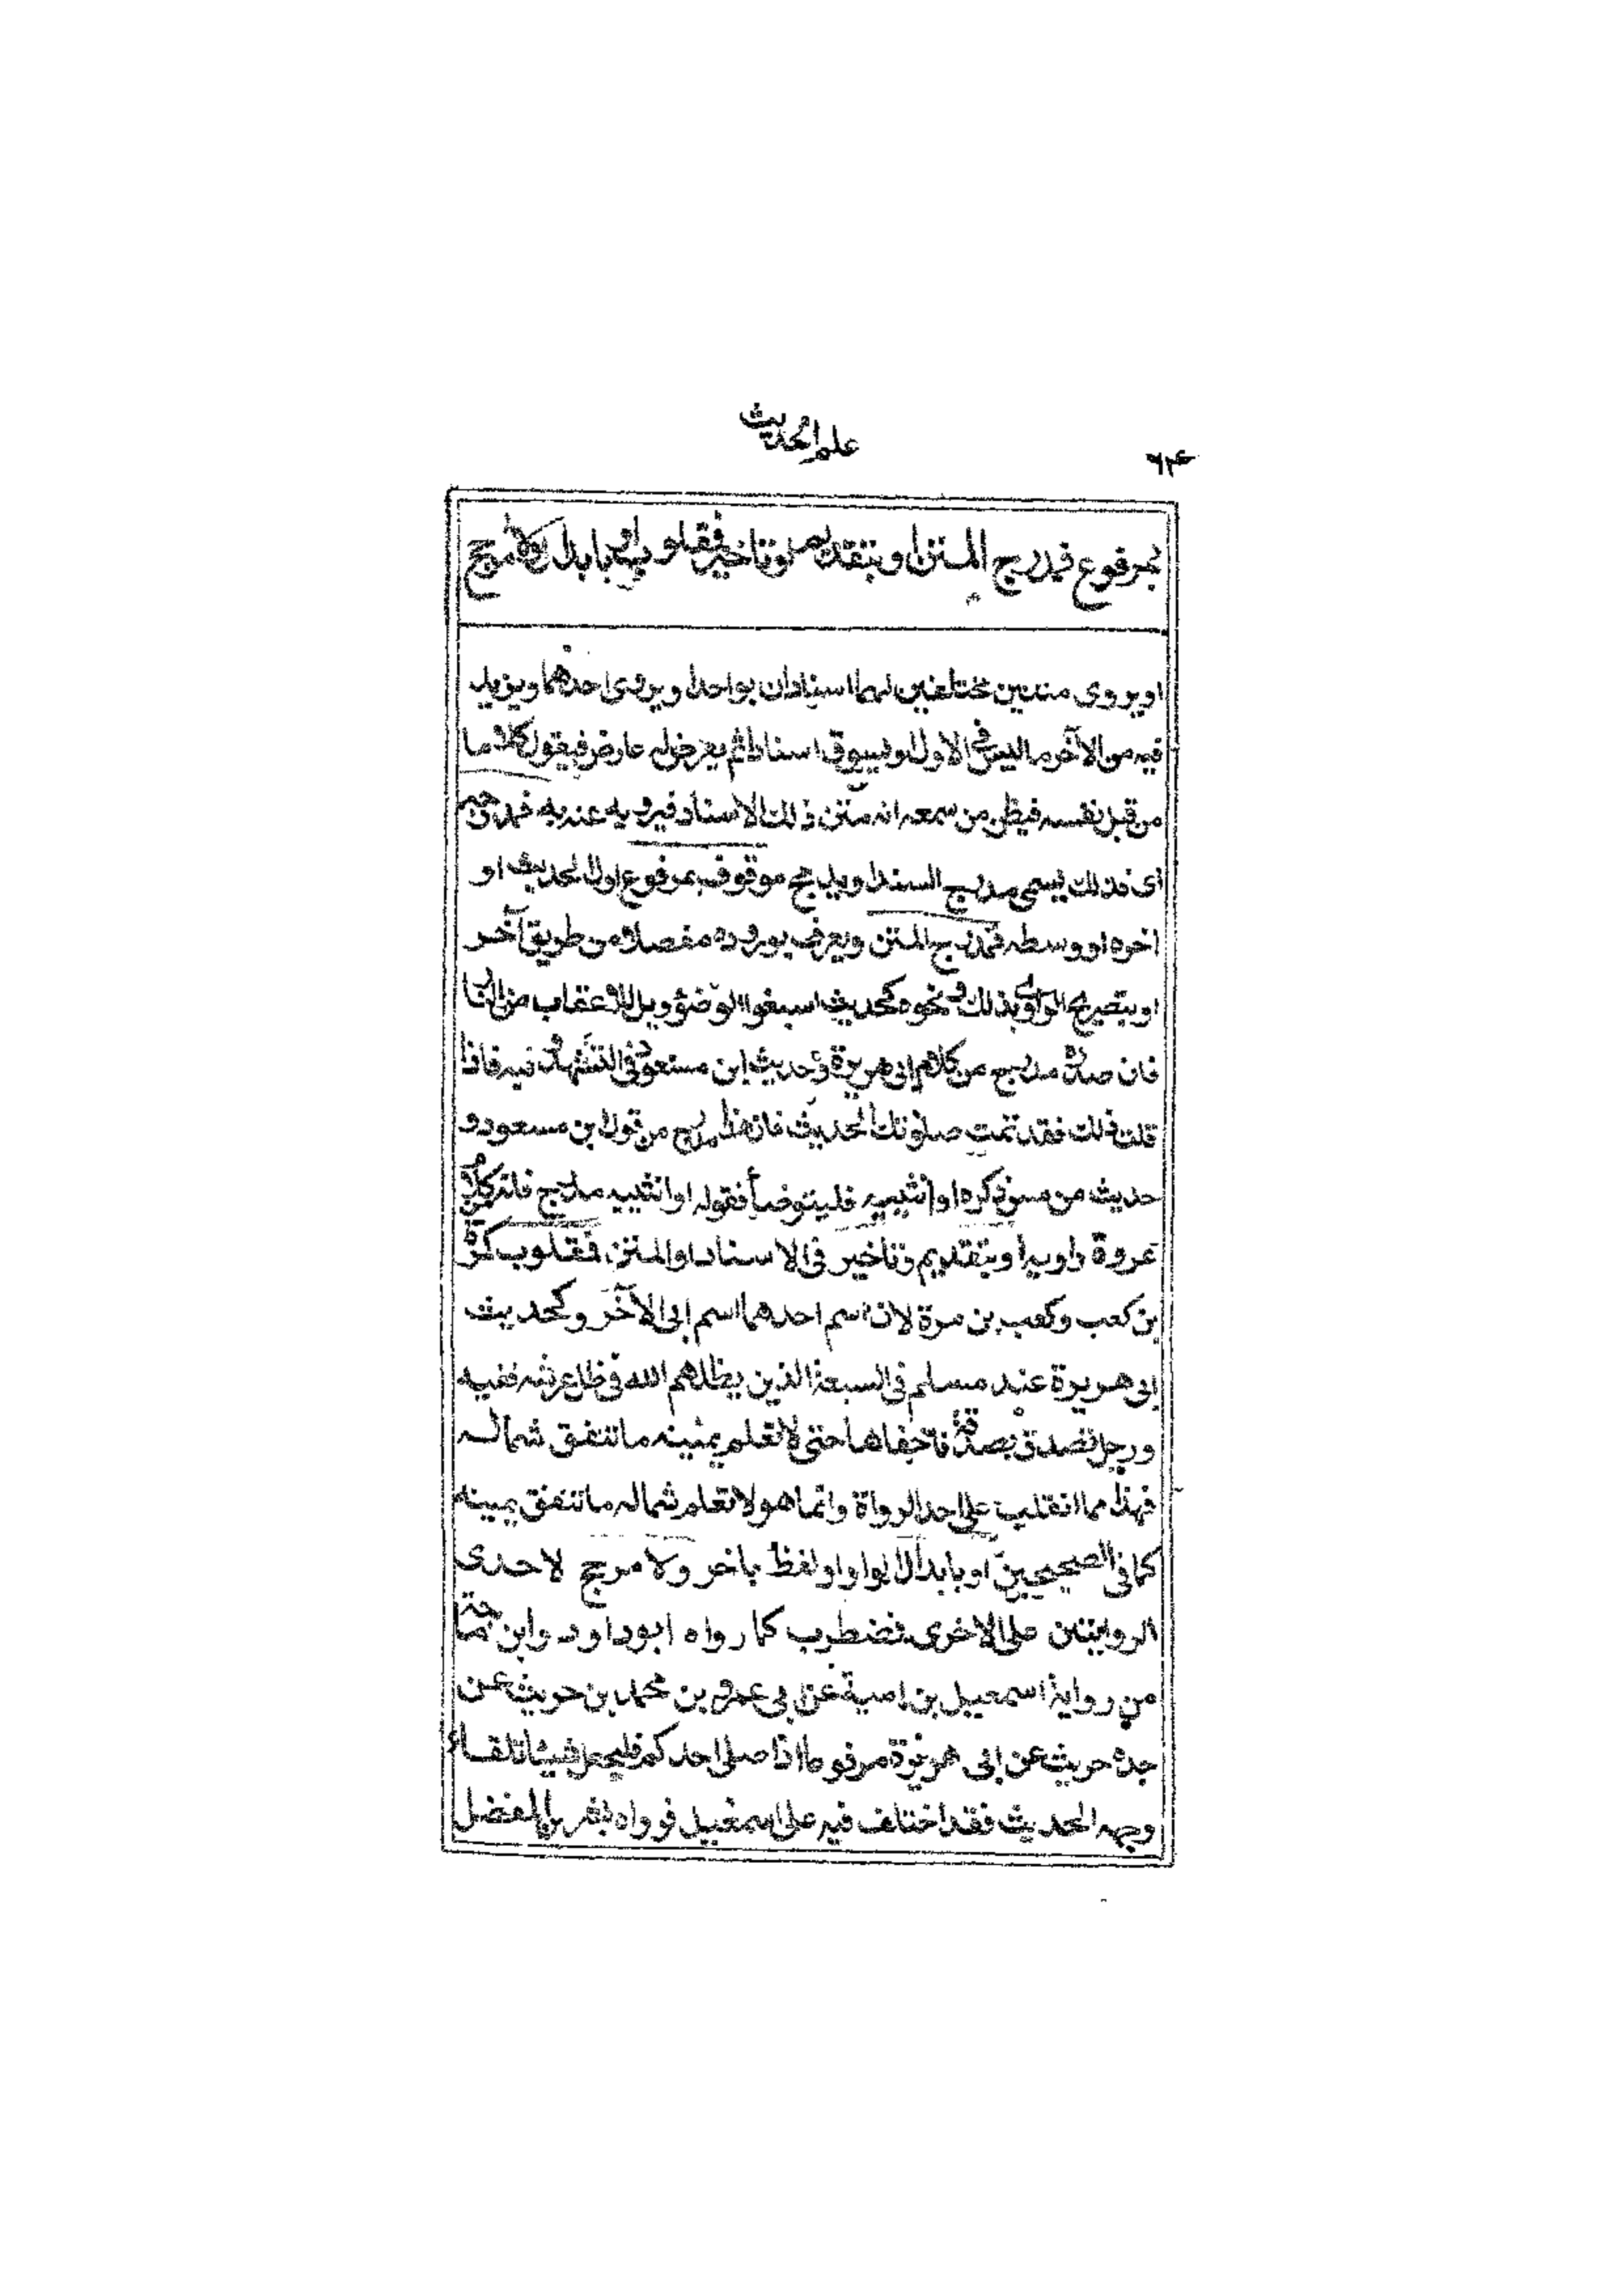 علم الحديث
٦٢
بمرفوع فمدرج المتن او بتقديم وتاخير فمقلوب او بابدال ولا مرجح
او يروى متنين مختلفين لهما اسنادان بواحد او يروى احدهما ويزيد
فيه من الآخر ما ليس فى الاول او يسوق اسنادا ثم يعرض له عارض فيقول كلاما
من قبل نفسه فيظن من سمعه انه متن ذلك الاسناد فيرويه عنه به
اى فذلك يسمى مدرج السند او يدمج موقوف بمرفوع اول الحديث او
اخره او وسطه فمدرج المتن ويعرف بوروده مفصلا من طريق آخر
او بتصريح الراوى بذلك ونحوه كحديث اسبغوا الوضؤ ويل للاعقاب من النار
فان صدره مدرج من كلام ابى هريرة وحديث ابن مسعود فى التشهد وفيه فاذا
قلت ذلك فقد تمت صلوتك الحديث فان هذا مدرج من قول ابن مسعود و
حديث من مس ذكره او انثييه فليتوضأ فقوله او انثييه مدرج فانه من كلام
عروة راويه او بتقديم وتاخير فى الاسناد او المتن فمقلوب كمرة
بن كعب وكعب بن مرة لان اسم احدهما اسم ابى الآخر وكحديث
ابى هريرة عند مسلم فى السبعة الذين يظلهم الله فى ظل عرشه ففيه
ورجل تصدق بصدقة فاخفاها حتى لا تعلم يمينه ما تنفق شماله
فهذا مما انقلب على احد الرواة وانما هو لا تعلم شماله ما تنفق يمينه
كما فى الصحيحين او بابدال لراو او لفظ باخر ولا مرجح لاحدى
الروايتين على الاخرى فمضطرب كما رواه ابو داود وابن ماجة
من رواية اسمعيل بن امية عن ابى عمرو بن محمد بن حريث عن
جده حريث عن ابى هريرة مرفوعا اذا صلى احدكم فليجعل شيئا تلقاء
وجهه الحديث فقد اختلف فيه على اسمعيل فرواه بشر بن المفضل